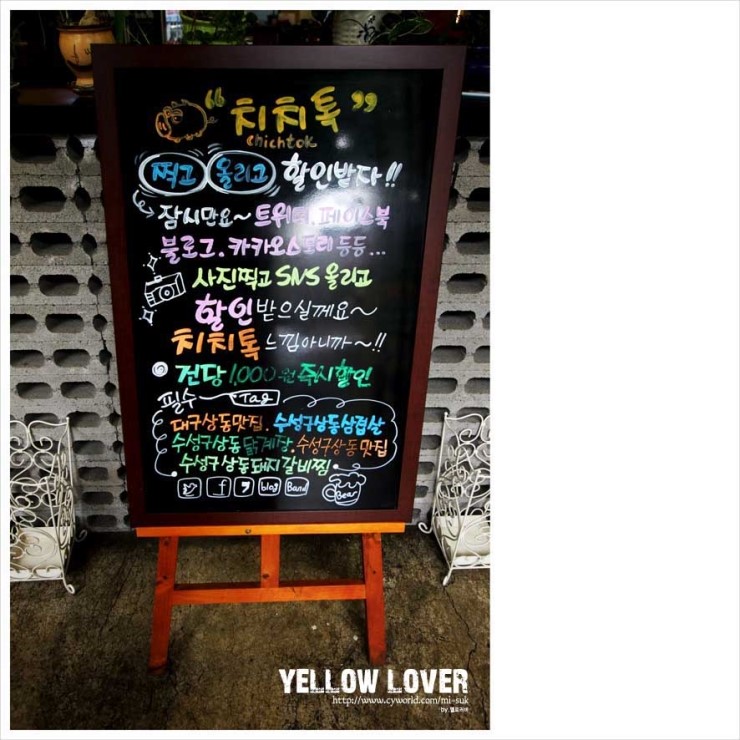 "치치톡"
chichtok
찍고 올리고 할인받다!!
잠시만요~ 트위터, 페이스북
블로그, 카카오스토리 등등...
사진찍고 SNS 올리고
할인 받으실께요~
치치톡 느낌아니까~!!
건당 1,000원 즉시할인
필수 Tag
대구상동맛집, 수성구상동삼겹살
수성구상동닭계장, 수성구상동맛집
수성구상동돼지갈비찜
f blog Band Bear
YELLOW LOVER
http://www.cyworld.com/mi-suk
by. 옐로러버